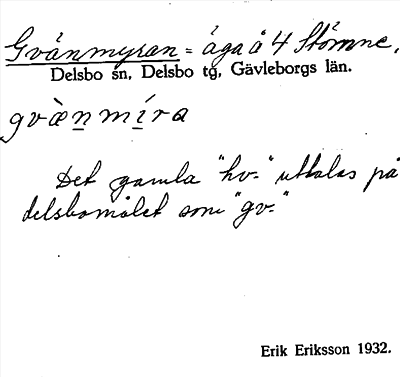 Gvänmyran = äga å 4 Stömne.
Delsbo sn, Delsbo tg, Gävleborgs län.
gvæ̀nmíra
Det gamla "hv-" uttalas på
delsbomålet som "gv-"
Erik Eriksson 1932.